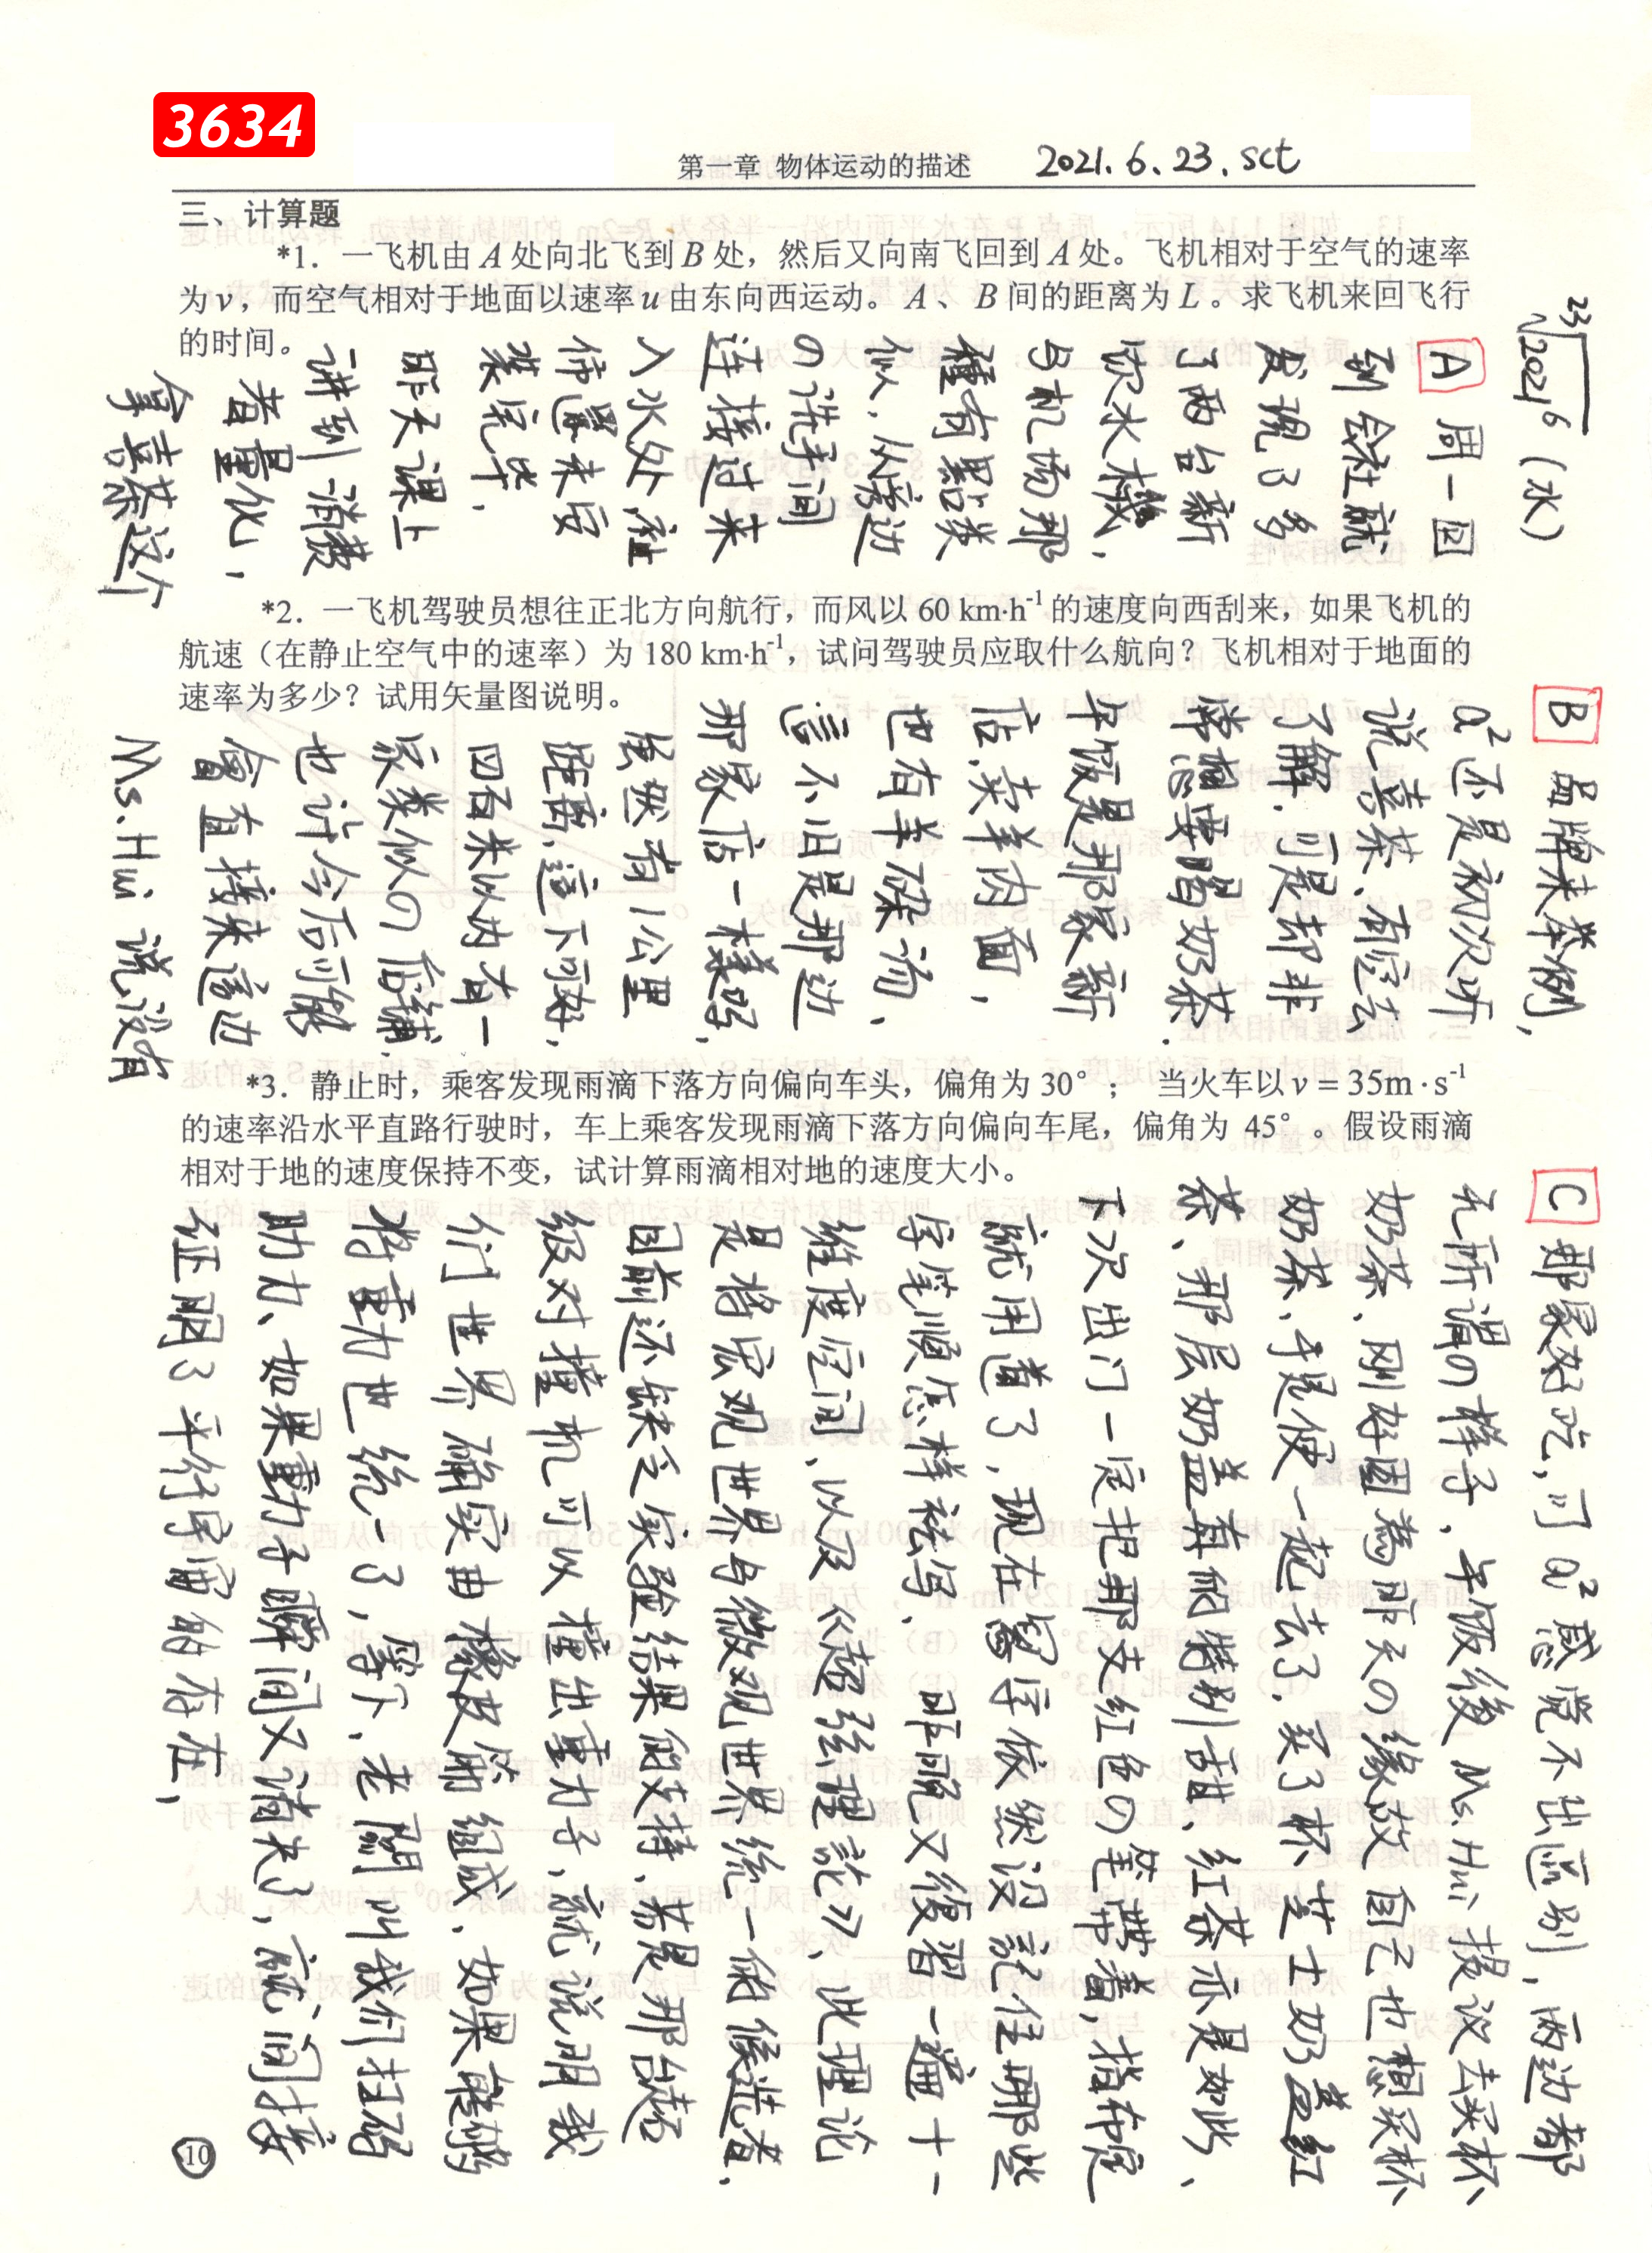 3634
第一章 物体运动的描述
2021.6.23.sct
三、计算题
*1．一飞机由 A 处向北飞到 B 处，然后又向南飞回到 A 处。飞机相对于空气的速率
为 v，而空气相对于地面以速率 u 由东向西运动。A、B 间的距离为 L。求飞机来回飞行
的时间。
²³√2021⁶ (水)
A 周一回
到会社就
发现了多
了两台新
饮水機、
与机场那
種有點类
似，从旁边
の洗手间
连接过来
入水处，
佈置未安
装完毕，
昨天课上
讲到消费
者量化，
拿喜茶这个
*2．一飞机驾驶员想往正北方向航行，而风以 60 km·h⁻¹ 的速度向西刮来，如果飞机的
航速（在静止空气中的速率）为 180 km·h⁻¹，试问驾驶员应取什么航向？飞机相对于地面的
速率为多少？试用矢量图说明。
B 品牌来举例，
a²还是初次听
说喜茶、有空去
了解．可是却非
常想要喝奶茶．
午饭是那家新
店．卖羊肉面，
也有羊杂汤、
言不旧是那边
那家店一樣好，
虽然有1公里
距离，這下可好，
四百米以内有一
家类似の店鋪，
也许今后可能
會直接来這边
Ms.Hui 说没有
*3．静止时，乘客发现雨滴下落方向偏向车头，偏角为 30°； 当火车以 v = 35m · s⁻¹
的速率沿水平直路行驶时，车上乘客发现雨滴下落方向偏向车尾，偏角为 45° 。假设雨滴
相对于地的速度保持不变，试计算雨滴相对地的速度大小。
C 那家好吃，可a²感觉不出區别，两边都
无所谓の样子，午饭後 Ms.Hui 提议去买杯
奶茶、刚好因為昨天の缘故自己也想买杯
奶茶、于是便一起去了．买了杯芝士奶盖红
茶、那层奶盖有個特别甜、红茶亦是如此、
下次出门一定把那支红色の笔带着，指布定
就用造了，现在寫字依然没記住哪些
字笔順怎样祛写， 昨晚又復習一遍十一
维度空间，以及《超弦理論》、此理论
是将宏观世界与微观世界统一的候选者，
目前还缺乏实验结果的支持、若是那台超
级对撞机可以撞出重力子，就说明我
们世界确实由橡皮筋组成、如果能夠
将重力也统一了，寫下、老闆叫我们扫码
助力、如果重力子瞬间又消失了，就间接
证明了平行宇宙的存在，
10